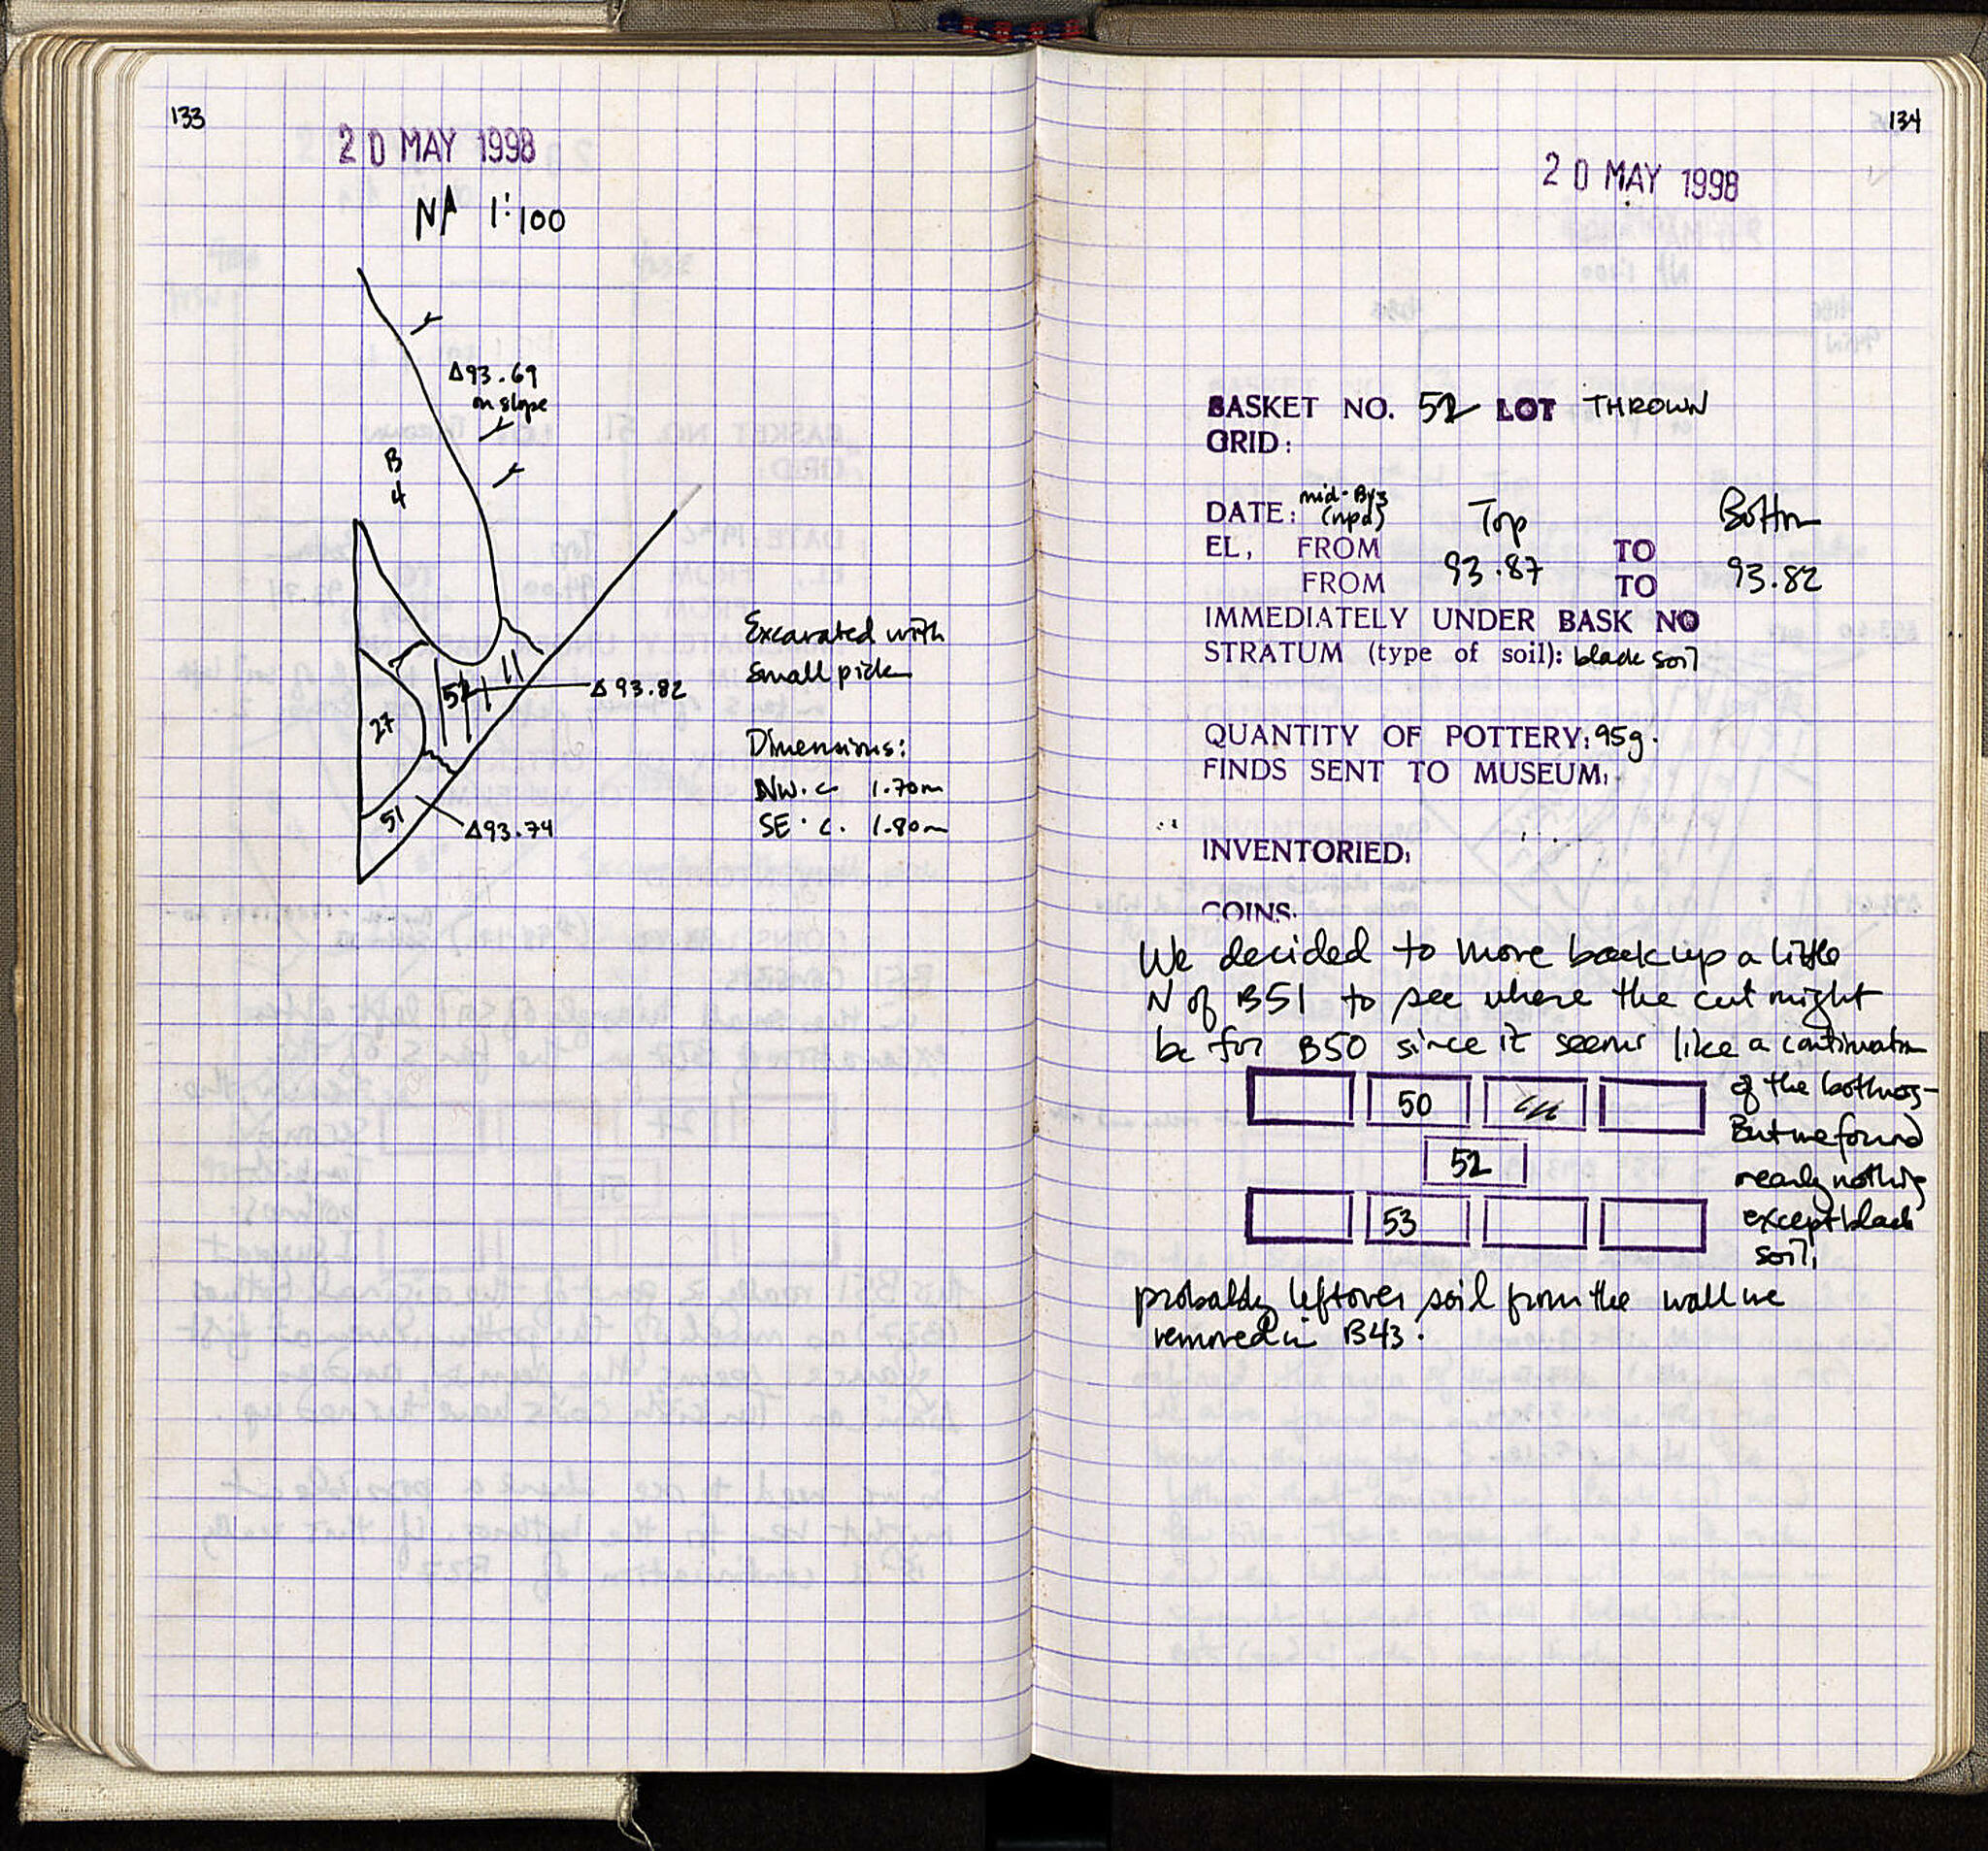 133
20 MAY 1998
NA 1:100
Δ93.69
on slope
B
4
52
Δ93.82
27
51
Δ93.74
Excavated with
small pick
Dimensions:
NW.c 1.70m
SE.c. 1.80m
134
20 MAY 1998
BASKET NO. 52 LOT THROWN
GRID:
DATE: mid-Byz (npd) Top Bottom
EL, FROM TO
FROM 93.87 TO 93.82
IMMEDIATELY UNDER BASK NO
STRATUM (type of soil): black soil
QUANTITY OF POTTERY: 95g.
FINDS SENT TO MUSEUM:
INVENTORIED:
COINS:
We decided to move back up a little
N of B51 to see where the cut might
be for B50 since it seems like a continuation
of the bothros-
50
But we found
52
nearly nothing
53
except black
soil,
probably leftover soil from the wall we
removed in B43.